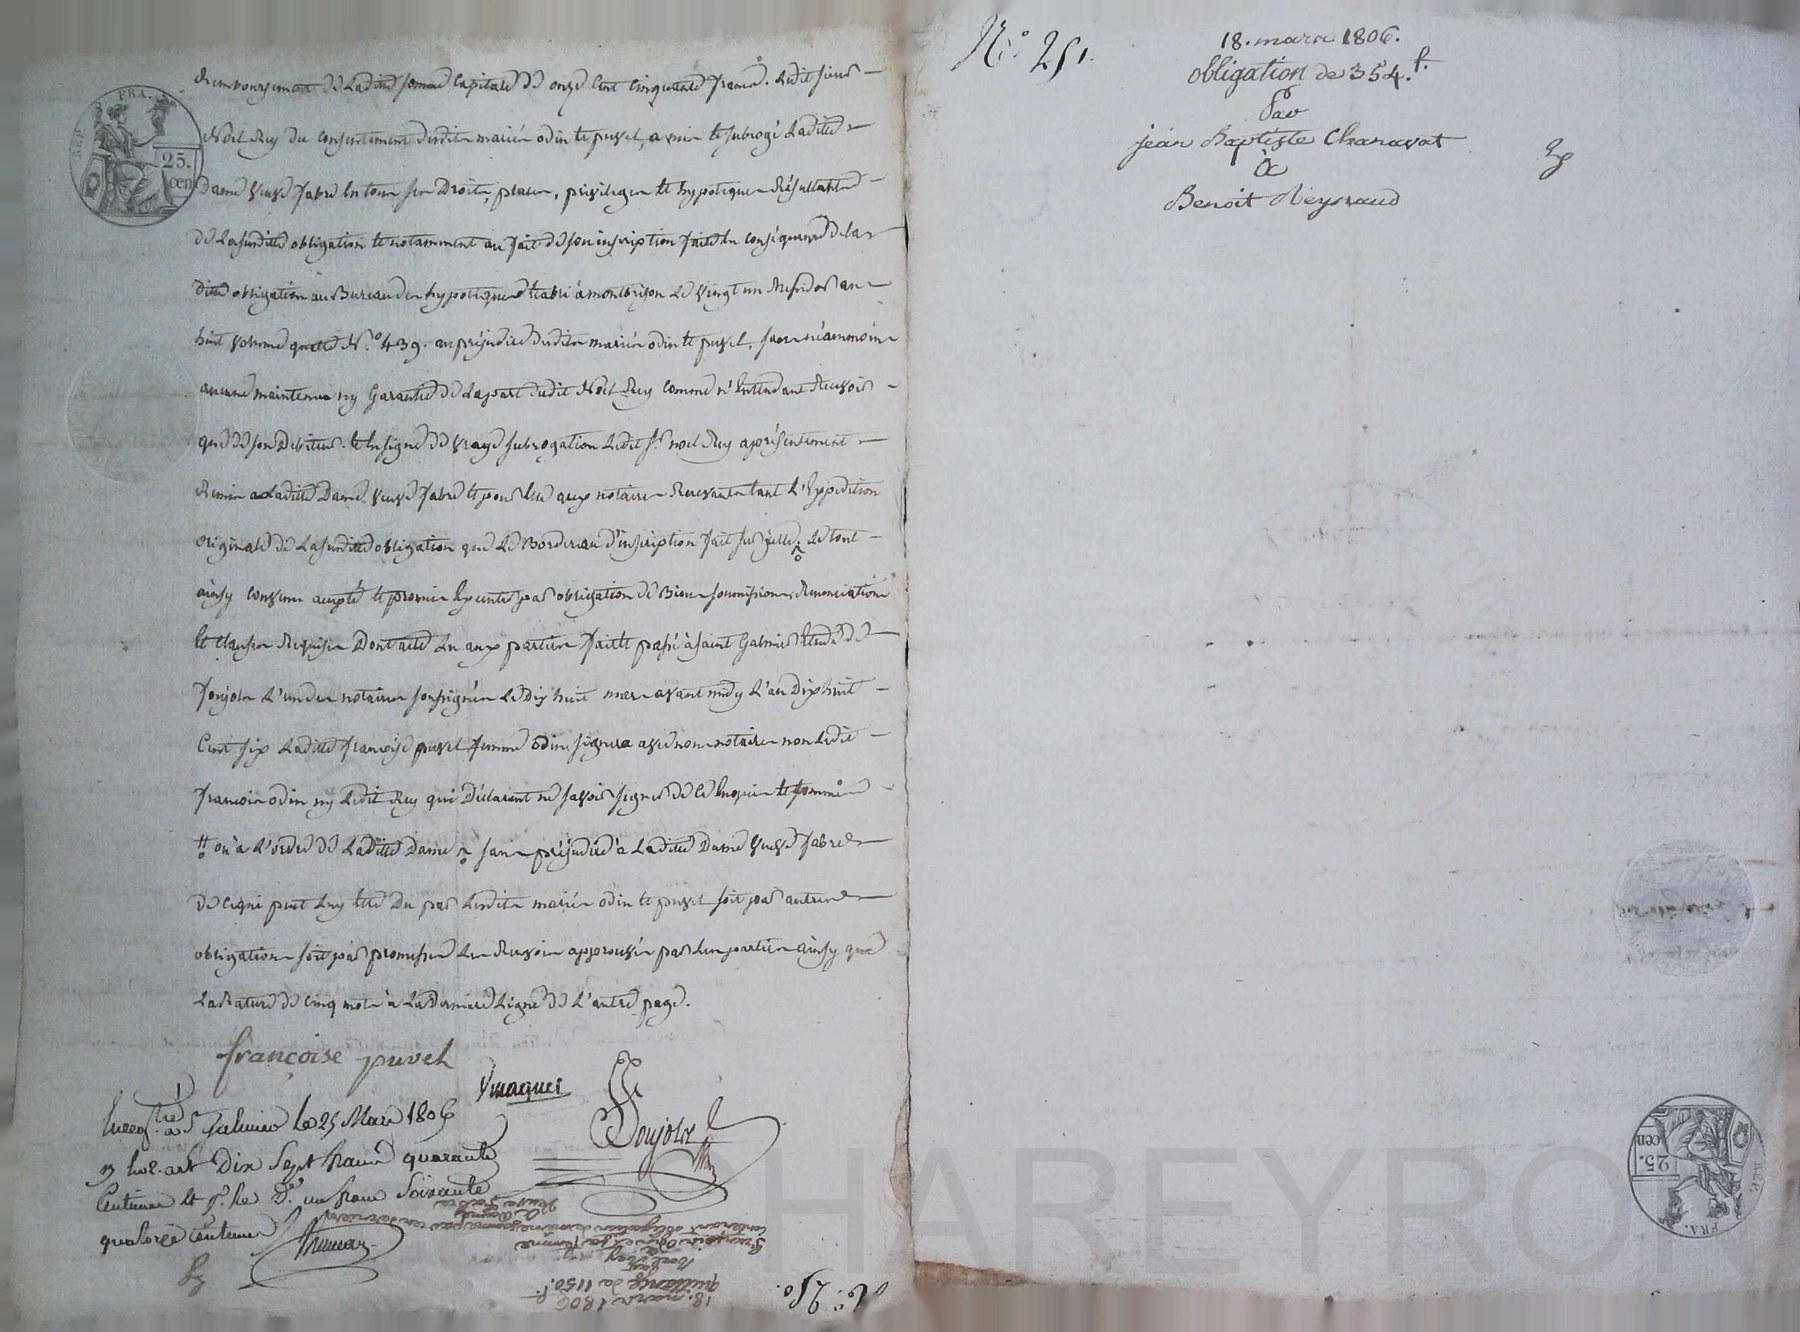 Remboursement de Laditte somme Capitale de onze Cent Cinquante francs. Ledit sieur
Noël Rey du Consentement desdits mariés odin et puvel, a mis et subrogé Laditte
Dame veuve fabre En tous ses Droits, places, privileges et hypoteques Résultants
de Lasusditte obligation et notamment au fait de son inscription faitte En Conséquence de la
ditte obligation au Bureau des hypoteques Etabli à montbrison Le vingt un Messidor an
huit volume quatre N.º 439. au préjudice desdits mariés odin et puvel, sans néanmoins
aucune maintenue ny Garantie de Lapart dudit Noël Rey Comme n'Entendant Recevoir
que de son Debiteur. et En signe de vraye subrogation Ledit s.r noel Rey a présentement
Remis a Laditte Dame veuve fabre et pour Elle aux notaires Recevants tant L'Expédition
originale de Lasusditte obligation que Le Bordereau d'inscription fait sur jcelle. Le tout
ainsy Convenu accepté et promis Exécuter par obligation de Biens soumissions, Renonciations
Et Clauses Requises Dont acte Lu aux parties fait et passé à Saint Galmier Etude de
Fonjols L'un des notaires soussignés Le Dix huit mars avant midy L'an Dix huit
Cent six Laditte françoise puvel femme odin signera avec nous notaires non Ledit
françois odin ny Ledit Rey qui Déclarent ne savoir signer de Ce Enquis et sommés
ou à L'ordre de Laditte Dame sans préjudice à Laditte Dame veuve fabre
de Ce qui peut Luy Etre Du par Lesdits mariés odin et puvel soit par autres
obligations soit par promesses Les Renvois approuvés par Les parties ainsy que
La Rature de Cinq mots à La Derniere Ligne de L'autre page.
françoise puvel
Fonjols
Enreg.tré à S.t Galmier Le 25 Mars 1806
Dix Sept francs quarante
Centimes et un franc Soixante
quatorze Centimes
18. mars 1806
quittance de 1150.f
Noël Rey
à
N.º 250.
REP. FRA.
25.
cen
N.º 251.
18. mars 1806.
obligation de 354.f.
Par
jean Baptiste Chanavat
à
Benoit Meynaud
REP. FRA.
25.
cen
CHAREYRON